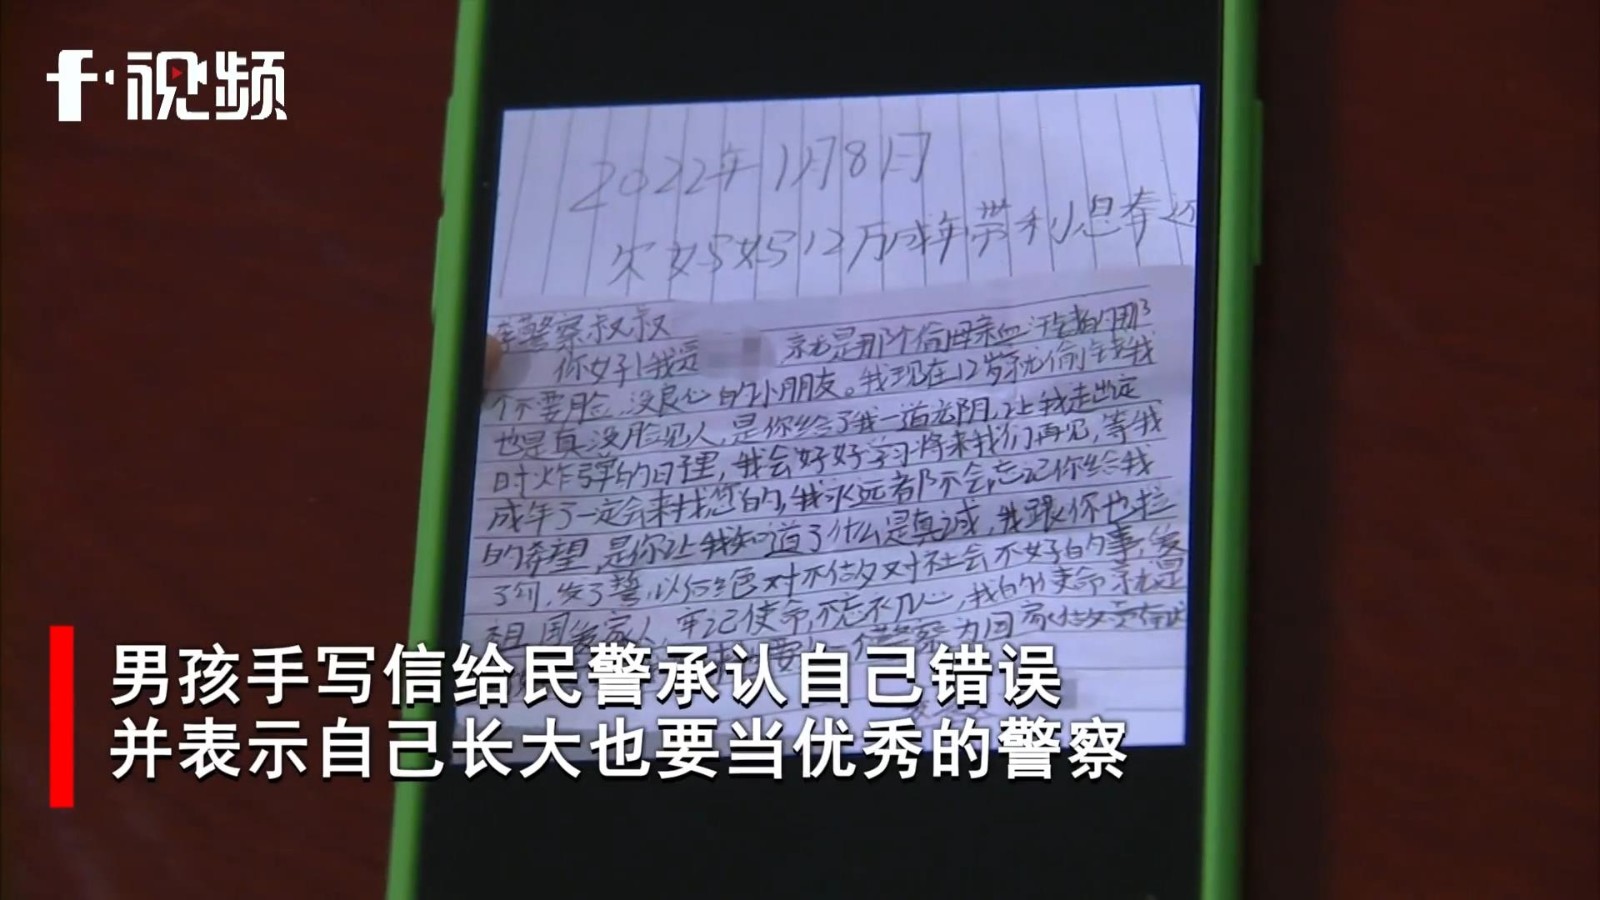 f·视频
2022年1月8日
欠妈妈12万成年带利息奉还
警察叔叔
你好!我是 就是那个偷母亲血汗钱的那
个不要脸,没良心的小朋友。我现在12岁就偷钱我
也是真没脸见人,是你给了我一道光阴,让我走出定
时炸弹的日里,我会好好学习将来我们再见,等我
成年了一定会来找您的,我永远都不会忘记你给我
的希望,是你让我知道了什么是真诚,我跟你也拉
了勾,发了誓,以后绝对不做对社会不好的事,爱
祖国爱家人,牢记使命,不忘不心,我的使命就是
警察 为国家做
男孩手写信给民警承认自己错误
并表示自己长大也要当优秀的警察